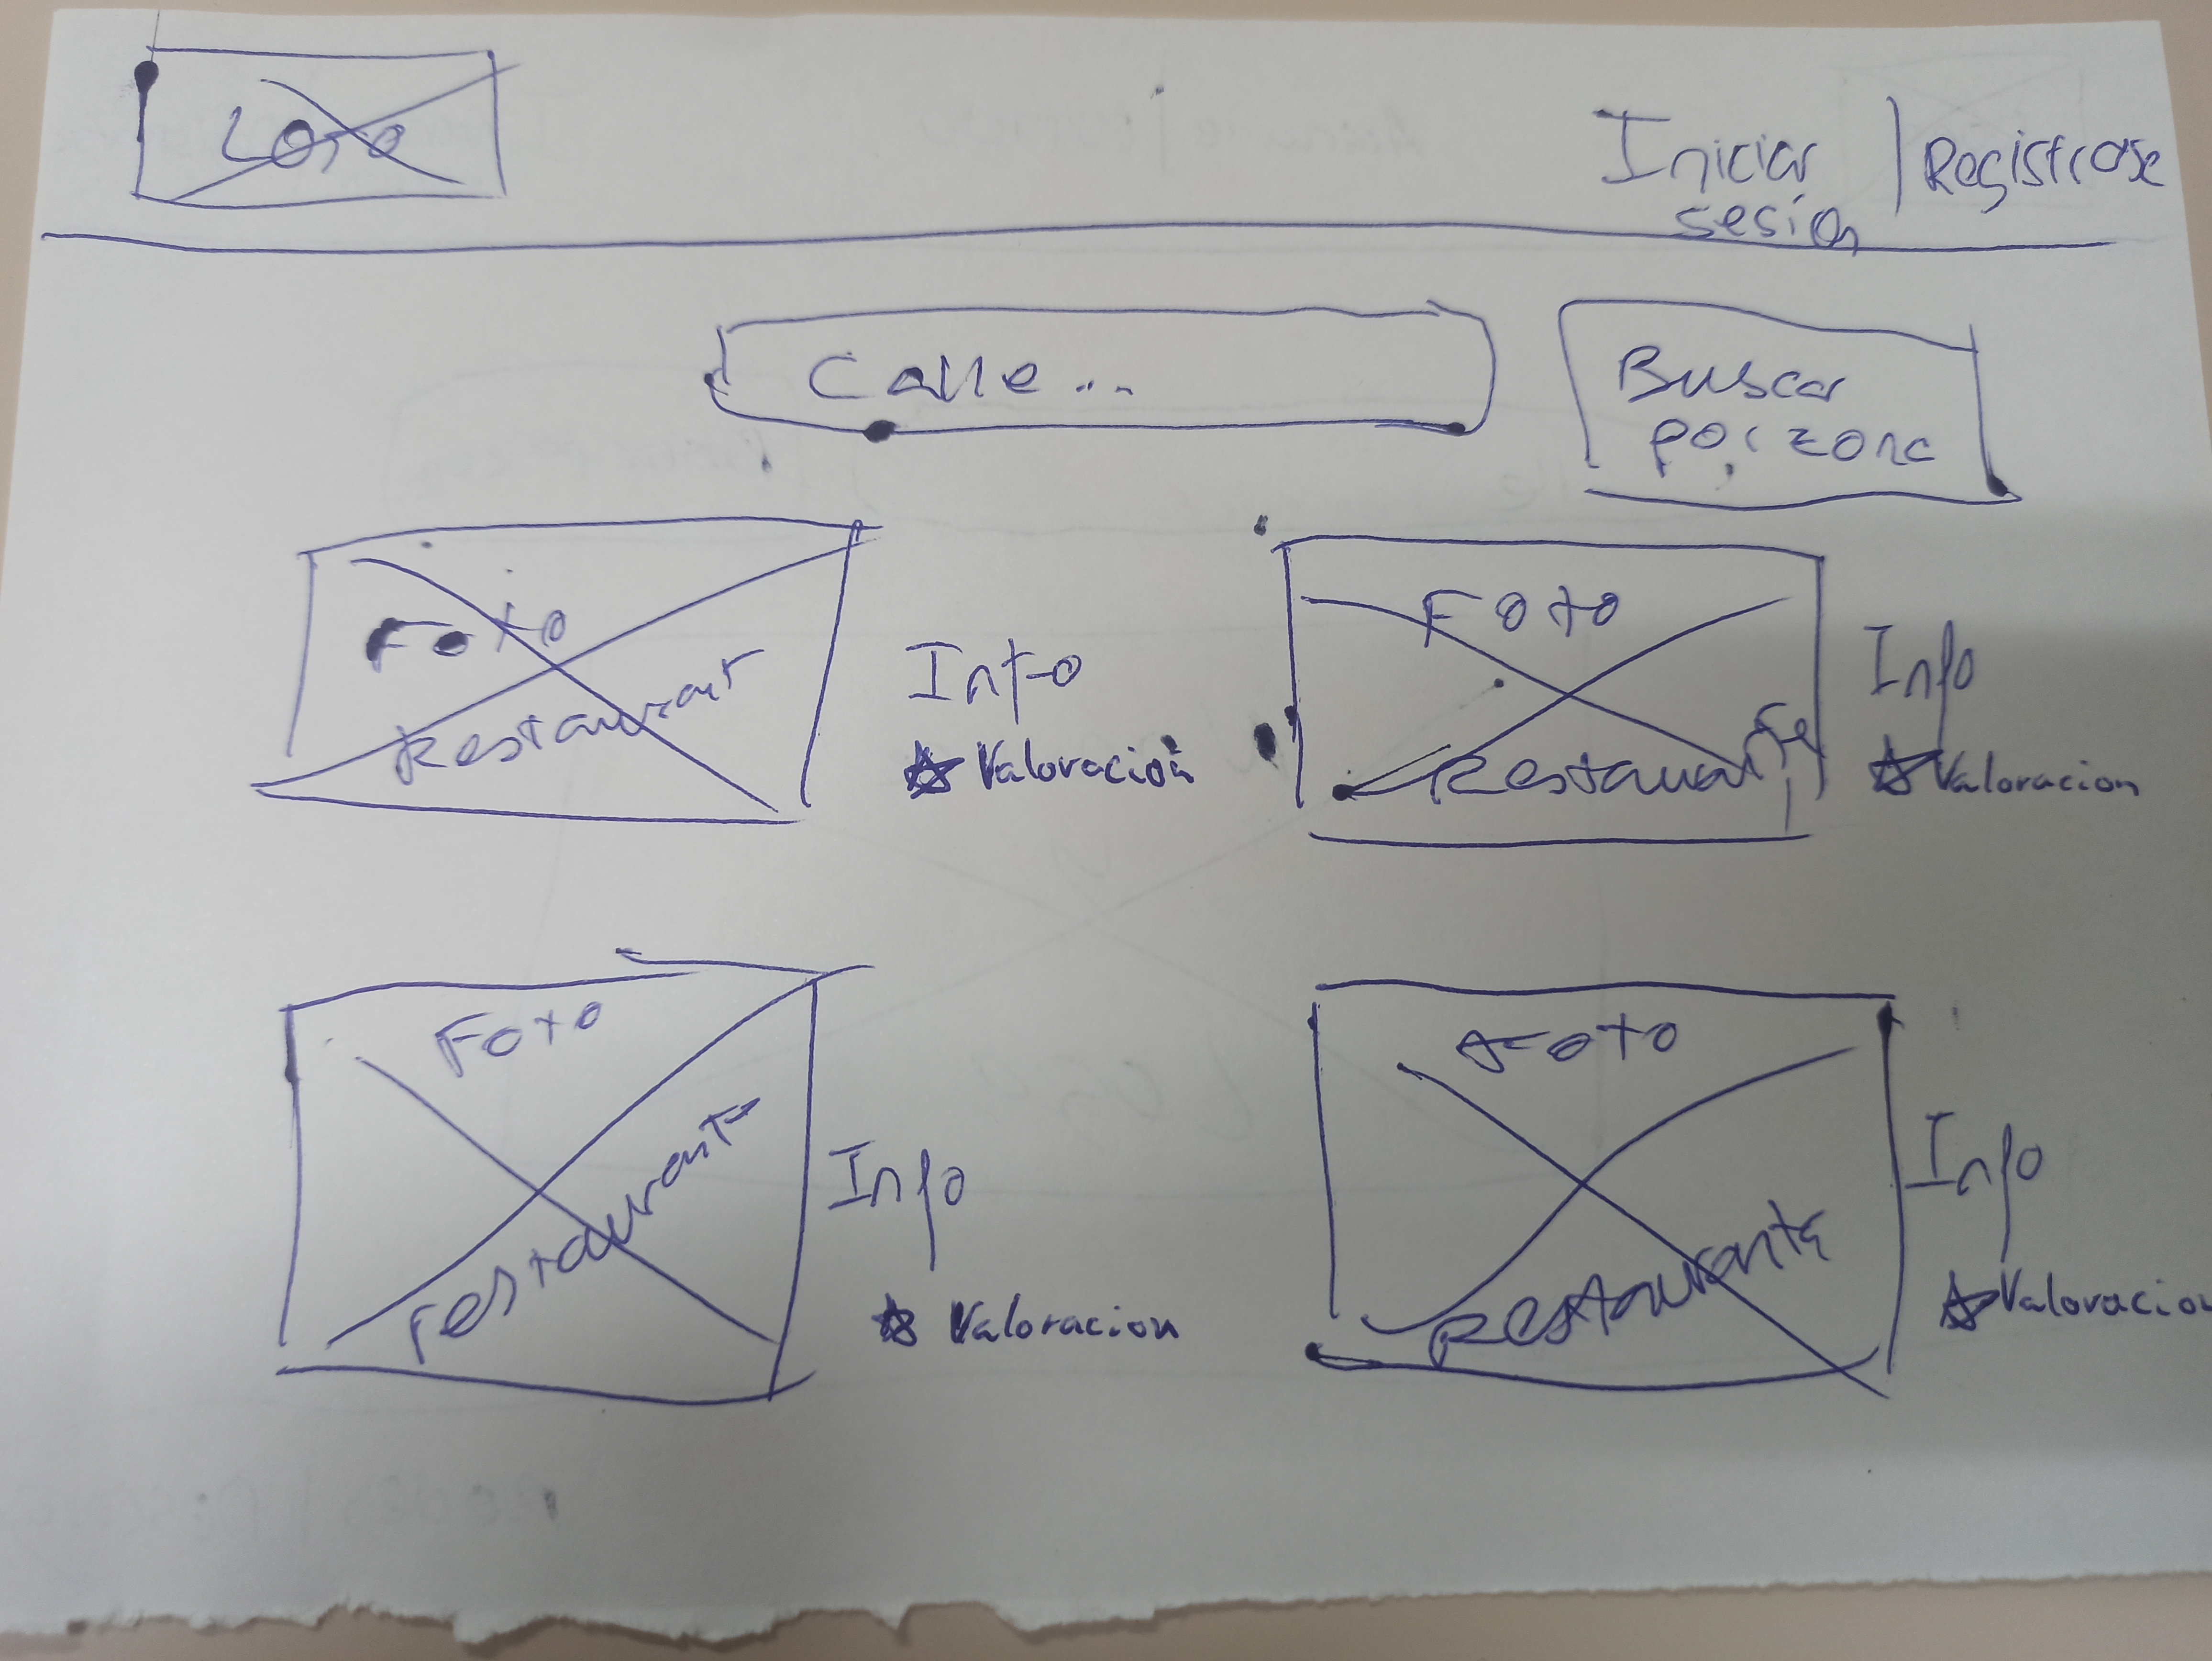 Logo
Iniciar
sesión
| Registrarse
Calle...
Buscar
por zona
Foto
Restaurant
Info
☆ Valoración
Foto
Restaurante
Info
☆ Valoracion
Foto
restaurante
Info
☆ Valoracion
Foto
Restaurante
Info
☆ Valoracion